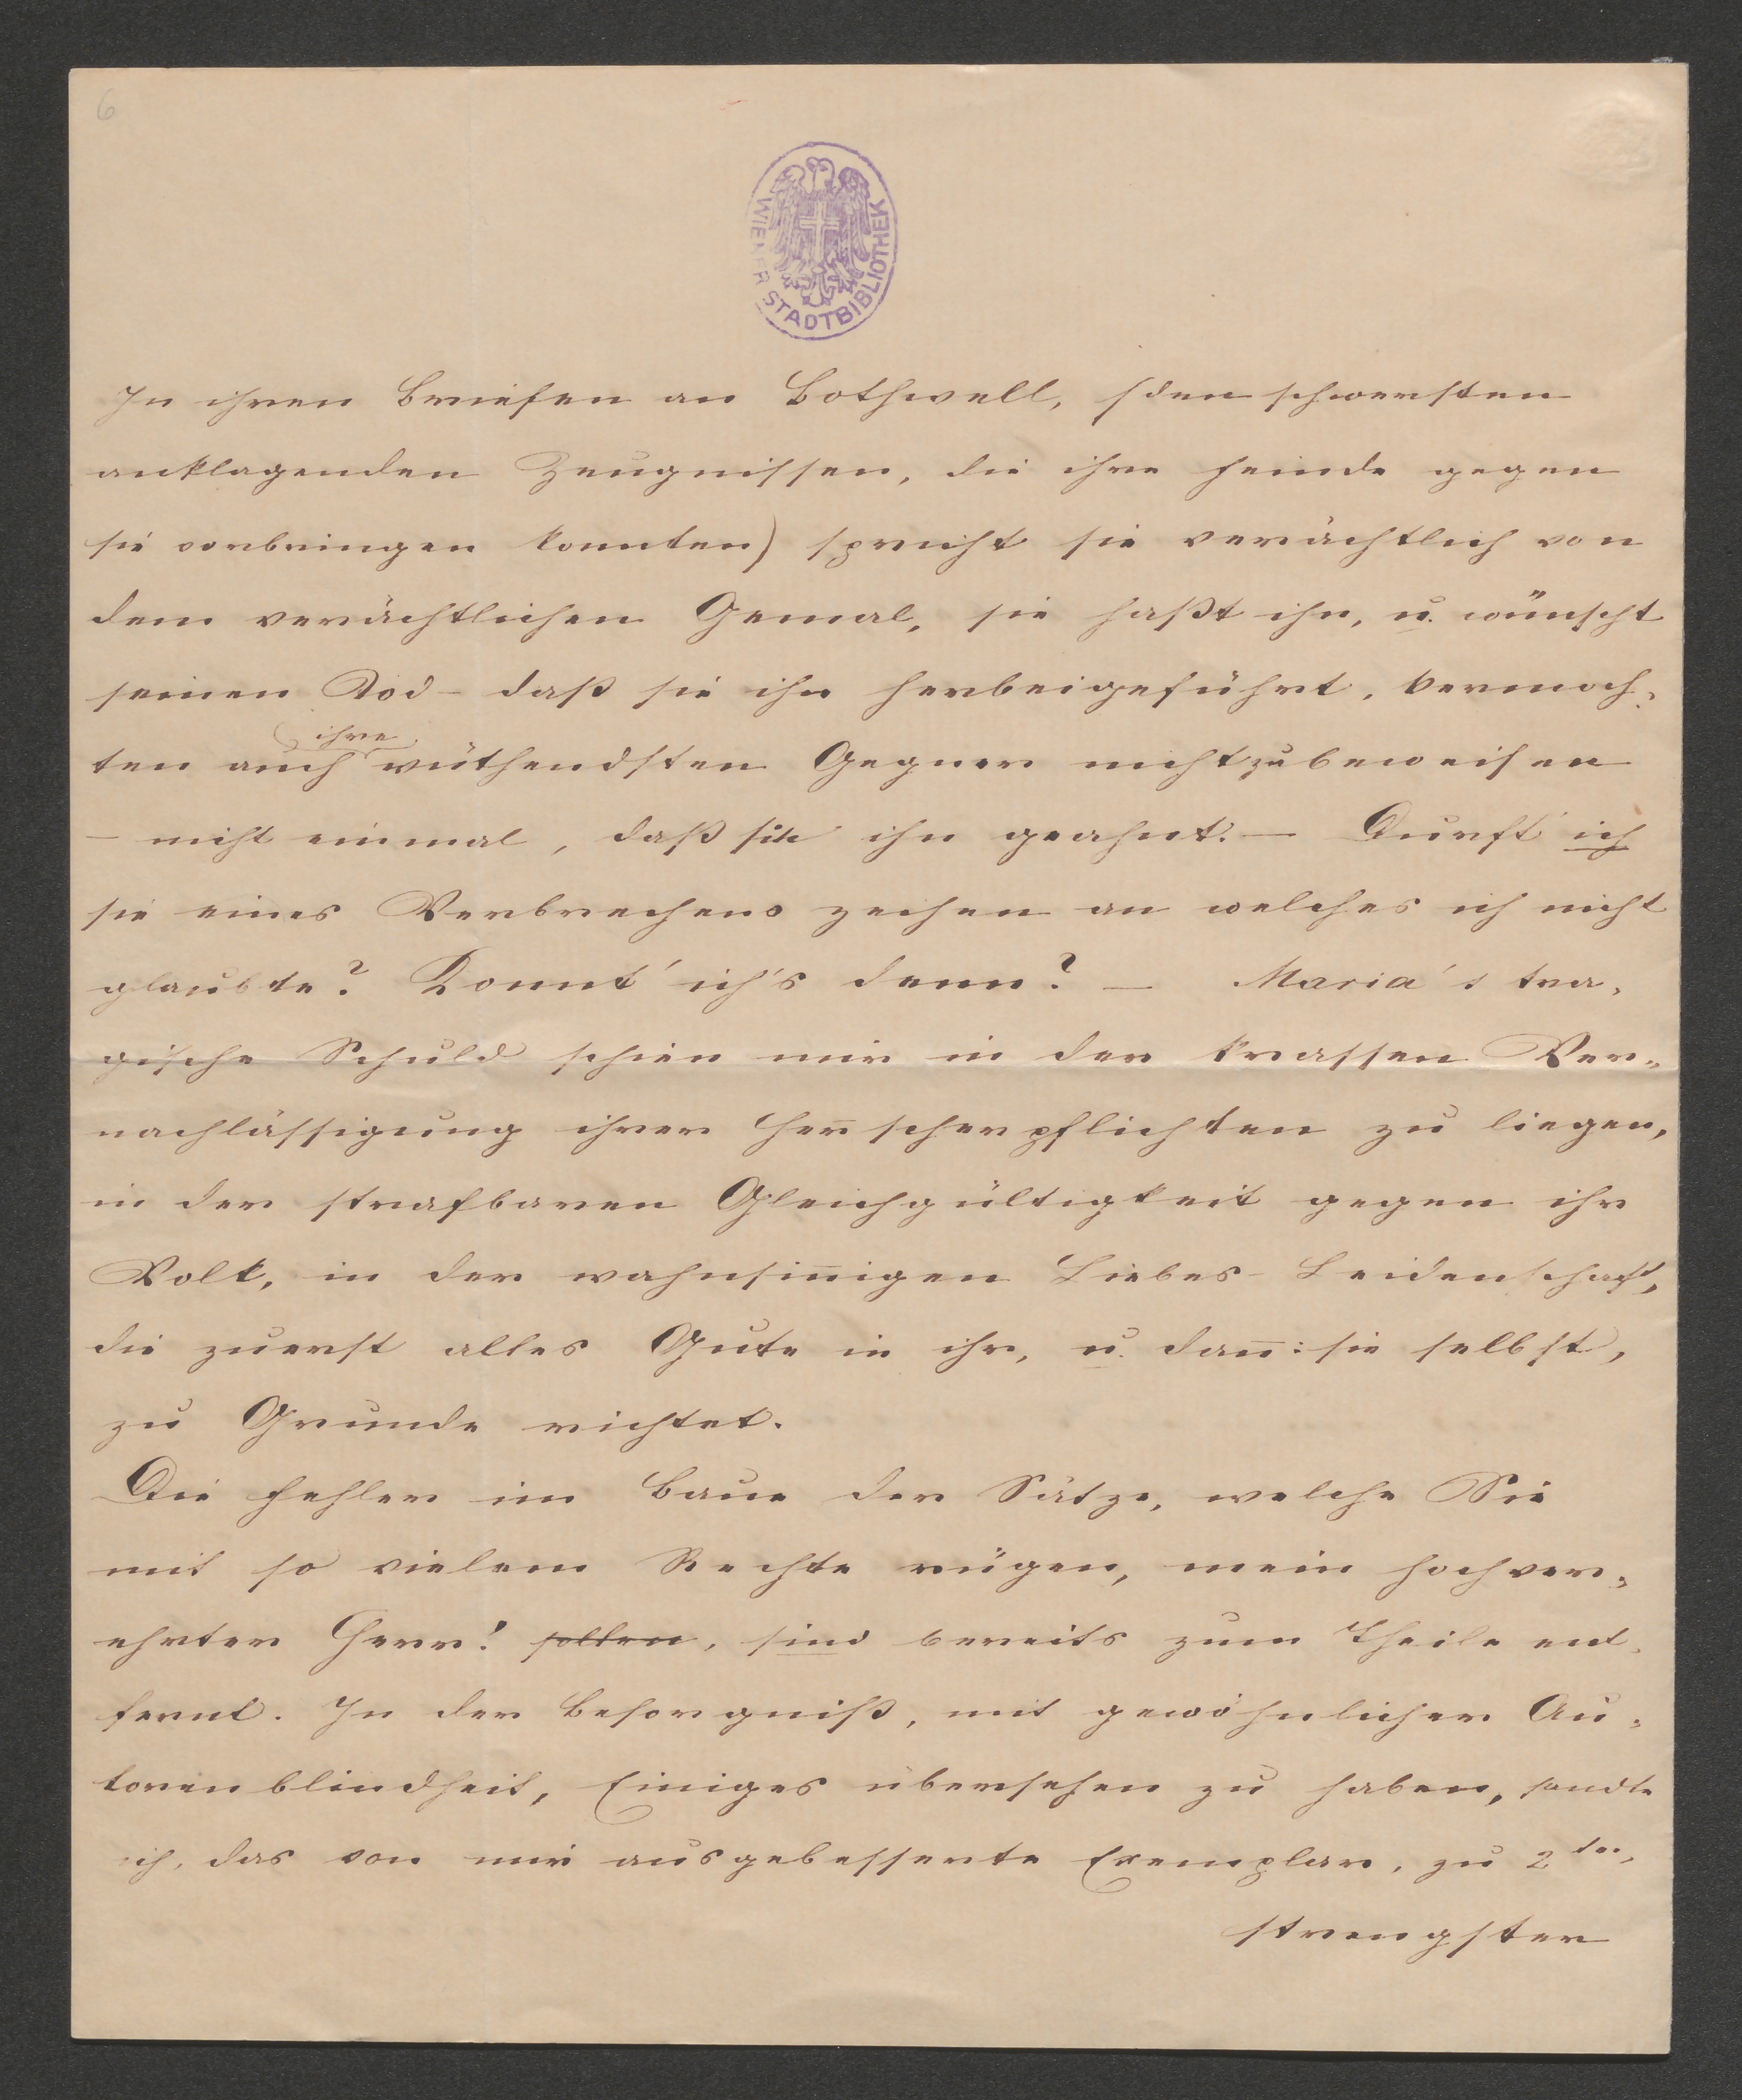 6
WIENER STADTBIBLIOTHEK
In ihren Briefen an Bothwell, (den schwersten
anklagenden Zeugnissen, die ihre Feinde gegen
sie vorbringen konnten) spricht sie verächtlich von
dem verächtlichen Gemal, sie haßt ihn, u. wünscht
seinen Tod – daß sie ihn herbeigeführt, vermoch-
ihre
ten auch wüthendsten Gegner nicht zu beweisen
– nicht einmal, daß sie ihn geahnt. – Durft ich
sie eines Verbrechens zeihen an welches ich nicht
glaubte? Konnt' ich's denn? – Maria's tra-
gische Schuld schien mir in der krassen Ver-
nachlässigung ihrer Herrscherpflichten zu liegen,
in der strafbaren Gleichgültigkeit gegen ihr
Volk, in der wahnsin̅igen Liebes-Leidenschaft,
die zuerst alles Gute in ihr, u. dan̅: sie selbst,
zu Grunde richtet.
Die Fehler im Baue der Sätze, welche Sie
mit so vielem Rechte rügen, mein hochver-
ehrter Herr! sollen, sind bereits zum Theile ent-
fernt. In der Besorgniß, mit gewöhnlicher Au-
torenblindheit, Einiges übersehen zu haben, sandte
ich, das von mir ausgebesserte Exemplar, zu 2ter,
strengster